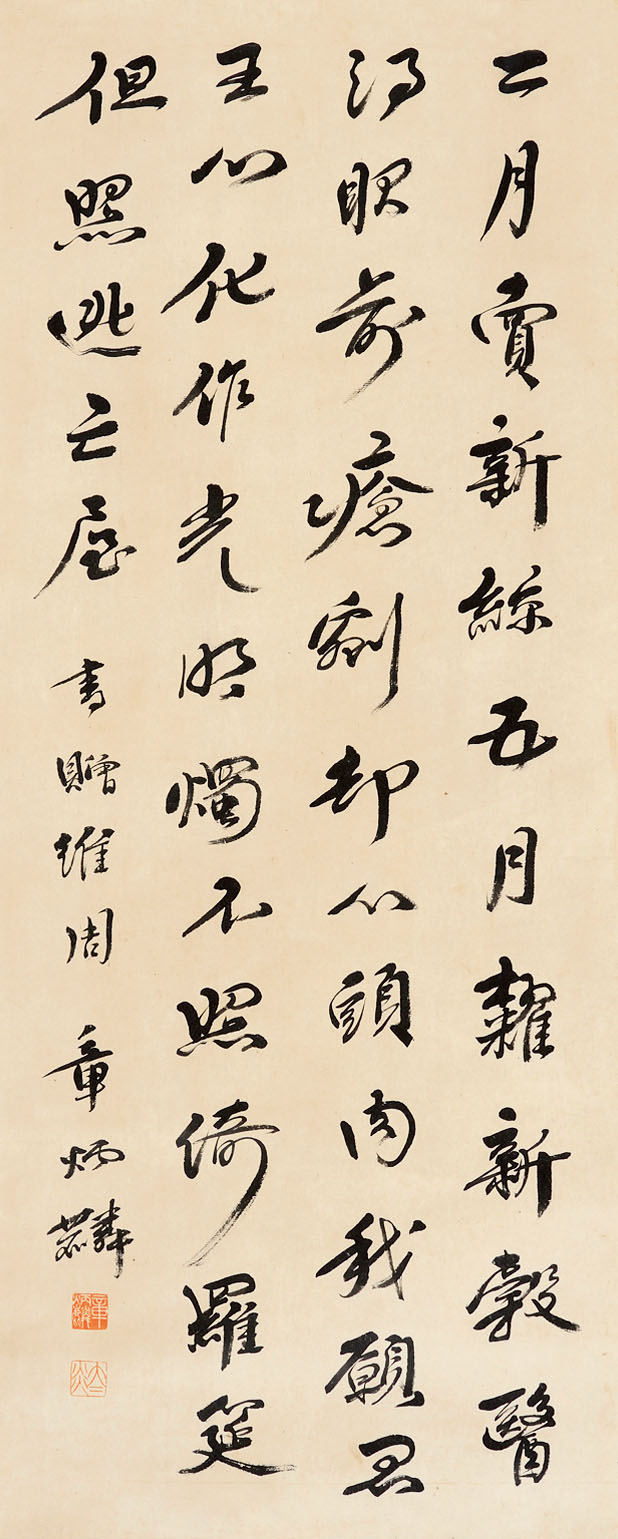 二月賣新絲五月糶新穀醫
得眼前瘡剜却心頭肉我願君
王心化作光明燭不照綺羅筵
但照逃亡屋 書贈維周 章炳麟
章炳麟
太炎